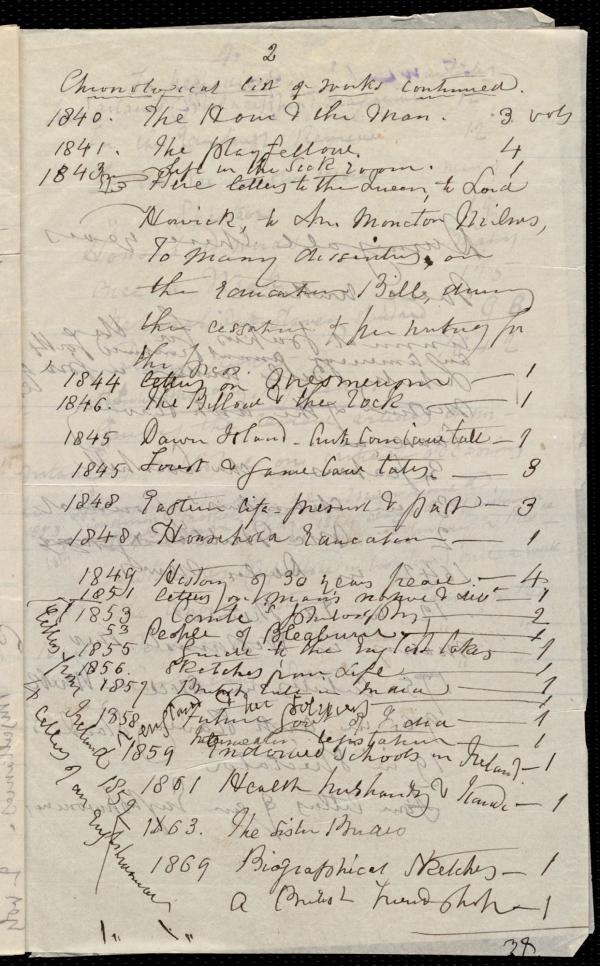 2
Chronological list of works continued.
1840. The Hour & the Man. 3 vols
1841. The playfellow. 4
1843 Life in the Sick room. 1
Here letters to the Queen, to Lord
Howick, to Mr Moncton Milnes,
To many dissenters, on
the Education Bill, during
the cessation of her writing for
the press.
1844 letters on Mesmerism — 1
1846. The Billow & the Rock — 1
1845 Dawn Island - Anti Corn Law tale — 1
1845 Forest & Game Law tales. — 3
1848 Eastern life - present & past — 3
1848 Household Education — 1
1849 History of 30 years peace. — 4
1851 letters on man's nature & — 1
1853 Comte's philosophy — 2
53 People of Bleaburn — 1
1855 Guide to the English lakes — 1
1856. Sketches from Life — 1
1857 British rule in India — 1
England & her soldiers
1858 Future of India — 1
legislation — 1
1859 Endowed Schools in Ireland. — 1
1861 Health husbandry & — 1
1863. The Sister
1869 Biographical Sketches — 1
A British Friendship — 1
Letters from Ireland
1859
38